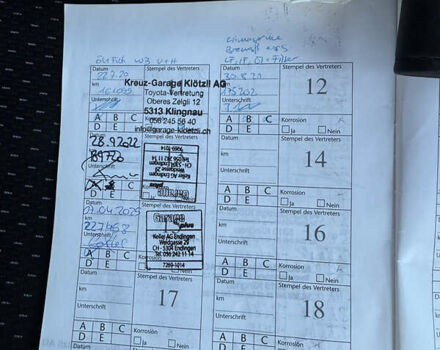 Datum
22.7.20
km
Unterschrift
Stempel des Vertreters
Kreuz-Garage Klötzli AG
Toyota-Vertretung
Oberes Zelgli 12
5313 Klingnau
056 245 56 40
info@garage-kloetzli.ch
A B C
D E
28.9.2022
189720
A B C
D E
07.04.2025
227458
Unterschrift
A B C
D E
Garage
plus
Keller AG Endingen
Weidgasse 29
CH - 5304 Endingen
Tel. 056 242 11 14
7269-1014
Datum
km
Unterschrift
Stempel des Vertreters
17
A B C
D E
Korrosion
Ja Nein
Datum
30.8.21
km
175202
Unterschrift
Stempel des Vertreters
12
A B C
D E
Korrosion
Ja Nein
Datum
km
Unterschrift
Stempel des Vertreters
14
A B C
D E
Korrosion
Ja Nein
Datum
km
Unterschrift
Stempel des Vertreters
16
A B C
D E
Korrosion
Ja Nein
Datum
km
Unterschrift
Stempel des Vertreters
18
A B C
D E
Korrosion
Ja Nein